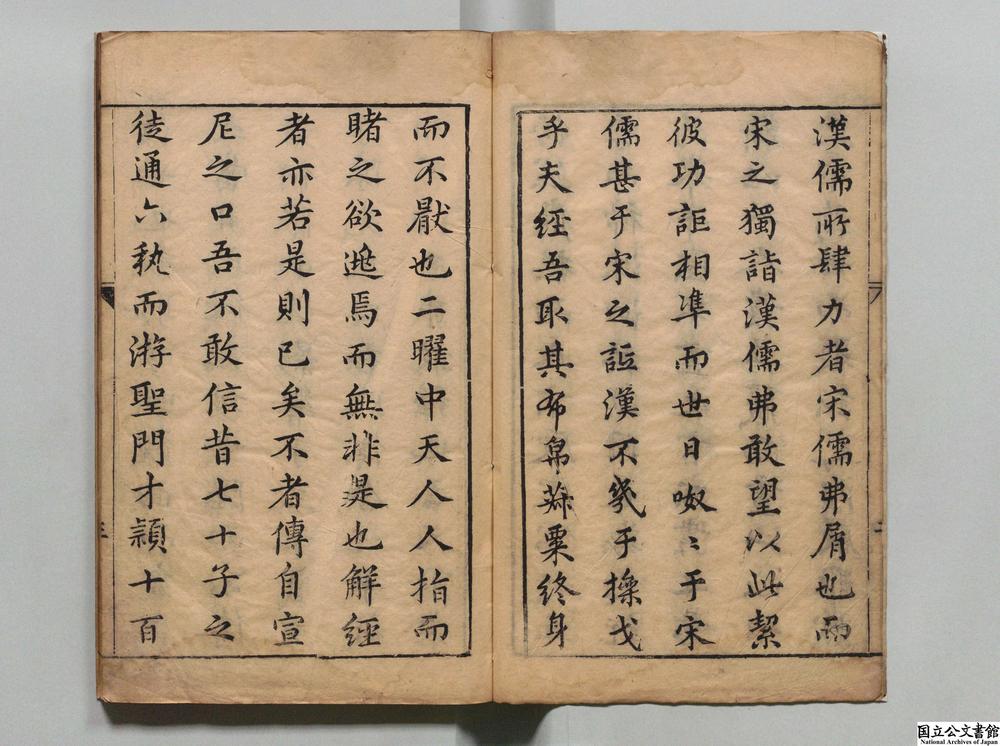 漢儒所肆力者宋儒弗屑也而
宋之獨詣漢儒弗敢望以此絜
彼功詎相準而世日呶〻于宋
儒甚于宋之詬漢不幾于操戈
乎夫經吾取其布帛菽粟終身
二
而不厭也二曜中天人人指而
睹之欲遁焉而無非是也解經
者亦若是則已矣不者傳自宣
尼之口吾不敢信昔七十子之
徒通六埶而游聖門才穎十百
三
国立公文書館
National Archives of Japan